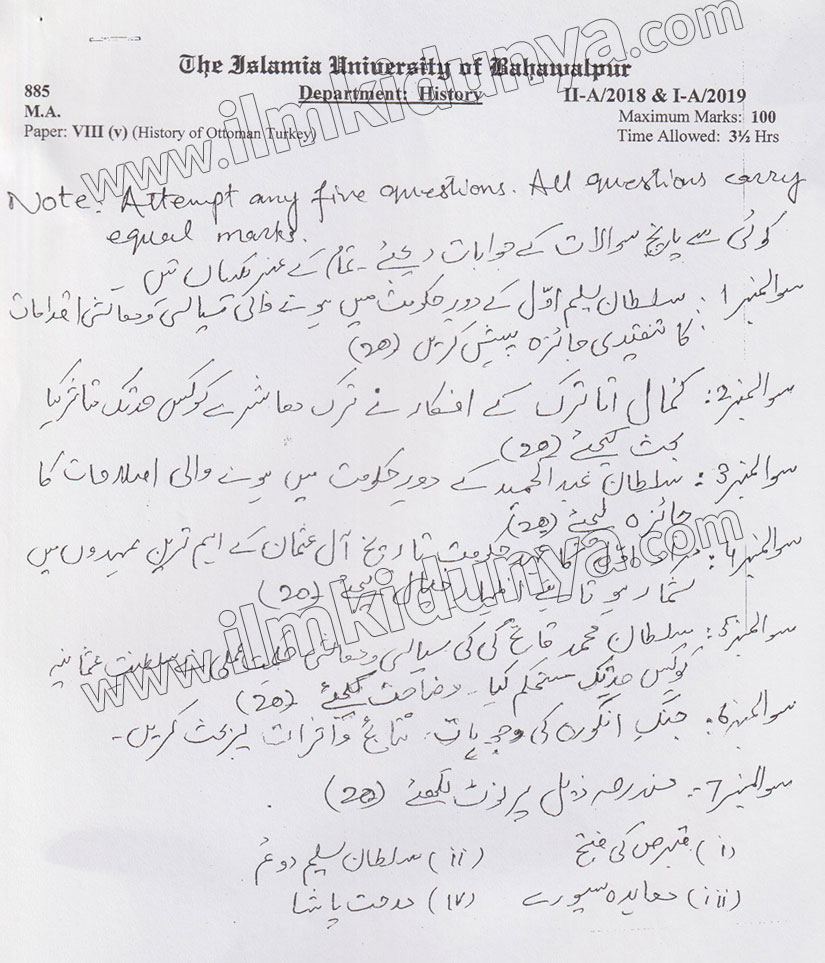 The Islamia University of Bahawalpur
885 Department: History II-A/2018 & I-A/2019
M.A. Maximum Marks: 100
Paper: VIII (v) (History of Ottoman Turkey) Time Allowed: 3½ Hrs
www.ilmkidunya.com
Note. Attempt any five questions. All questions carry
equal marks.
کوئی سے پانچ سوالات کے جوابات دیجئے۔ تمام کے نمبر یکساں ہیں
سوالنمبر1: سلطان سلیم اوّل کے دورِ حکومت میں ہونے والی سیاسی و معاشی اقدامات
کا تنقیدی جائزہ پیش کریں (20)
سوالنمبر2: کمال اتاترک کے افکار نے ترک معاشرے کو کس حد تک متاثر کیا
بحث کیجئے (20)
سوالنمبر3: سلطان عبدالحمید کے دورِ حکومت میں ہونے والی اصلاحات کا
جائزہ لیجئے (20)
سوالنمبر4: مراد اوّل کا عہد حکومت تاریخ آل عثمان کے اہم ترین عہدوں میں
شمار ہوتا ہے اظہار خیال کیجئے (20)
سوالنمبر5: سلطان محمد فاتح کی کی سیاسی و معاشی حکمت عملی نے سلطنت عثمانیہ
کو کس حد تک مستحکم کیا۔ وضاحت کیجئے (20)
www.ilmkidunya.com
سوالنمبر6: جنگِ انگورہ کی وجوہات، نتائج و اثرات پر بحث کریں۔
سوالنمبر7۔ مندرجہ ذیل پر نوٹ لکھئے (20)
(i) قبرص کی فتح (ii) سلطان سلیم دوئم
(iii) معاہدہ سیورے (iv) مدحت پاشا